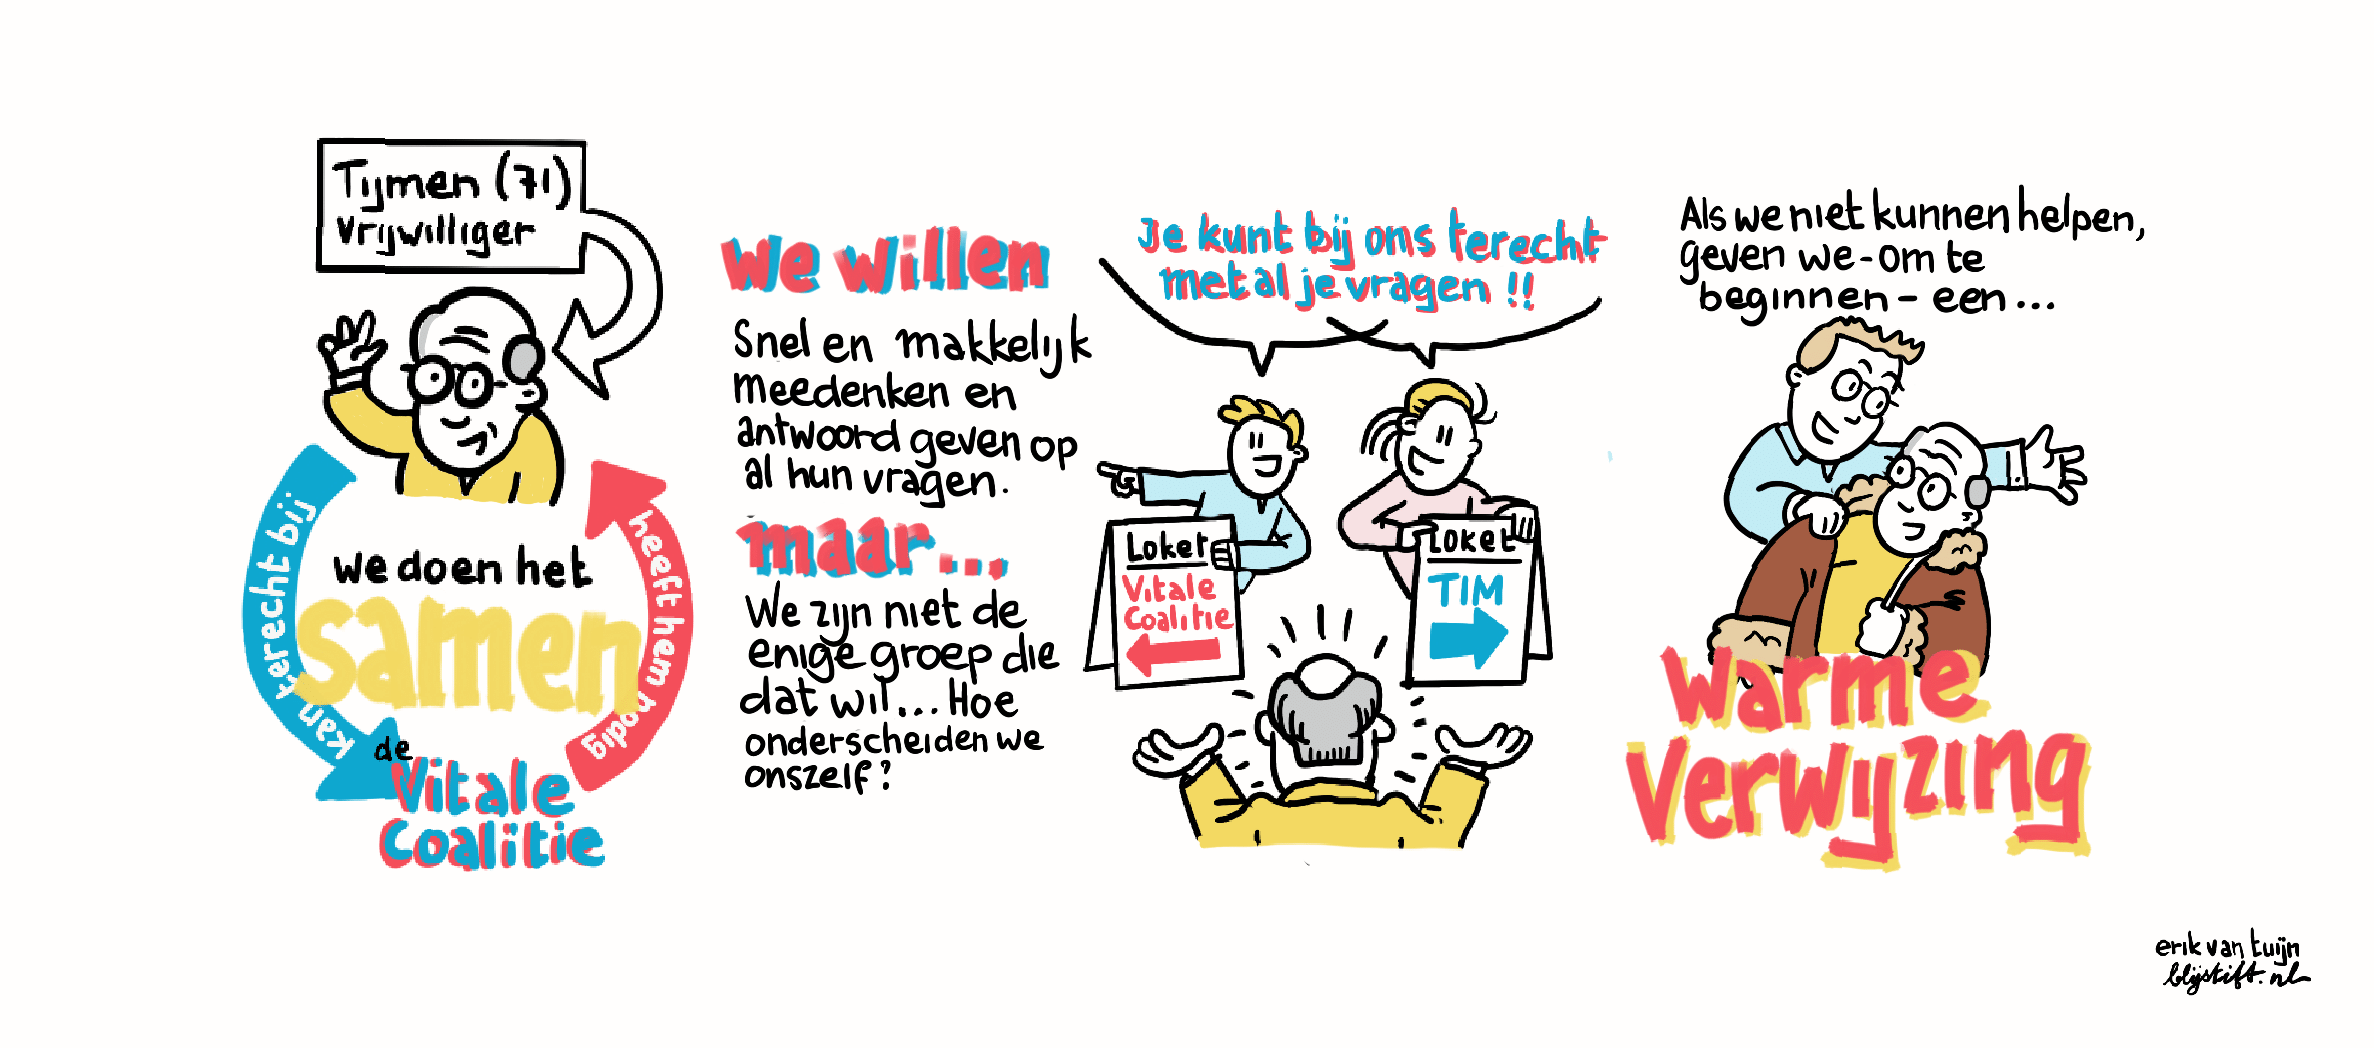 Tijmen (71)
vrijwilliger
kan terecht bij
heeft hem nodig
we doen het
samen
de
Vitale
Coalitie
We willen
Snel en makkelijk
meedenken en
antwoord geven op
al hun vragen.
maar...
We zijn niet de
enige groep die
dat wil... Hoe
onderscheiden we
onszelf?
Je kunt bij ons terecht
met al je vragen !!
Loket
Vitale
Coalitie
Loket
TIM
Als we niet kunnen helpen,
geven we - om te
beginnen - een...
Warme
Verwijzing
erik van tuijn
blijstift.nl